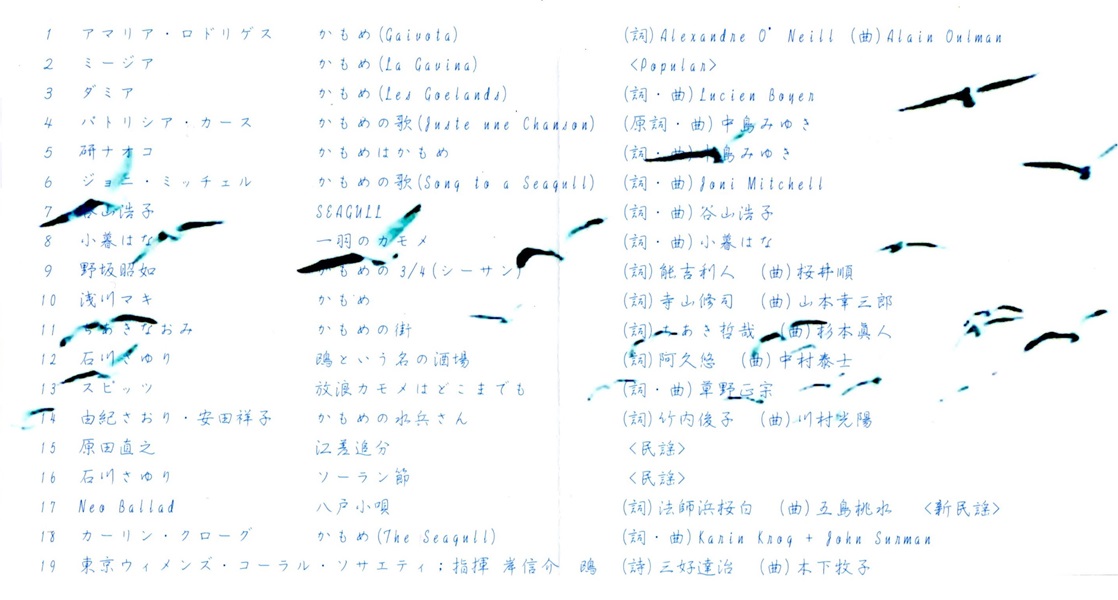 1 アマリア・ロドリゲス かもめ(Gaivota) (詞)Alexandre O'Neill (曲)Alain Oulman
2 ミージア かもめ(La Gavina) <Popular>
3 ダミア かもめ(Les Goelands) (詞・曲)Lucien Boyer
4 パトリシア・カース かもめの歌(Juste une Chanson) (原詞・曲)中島みゆき
5 研ナオコ かもめはかもめ (詞・曲)中島みゆき
6 ジョニ・ミッチェル かもめの歌(Song to a Seagull) (詞・曲)Joni Mitchell
7 谷山浩子 SEAGULL (詞・曲)谷山浩子
8 小暮はな 一羽のカモメ (詞・曲)小暮はな
9 野坂昭如 かもめの3/4(シーサン) (詞)能吉利人 (曲)桜井順
10 浅川マキ かもめ (詞)寺山修司 (曲)山本幸三郎
11 ちあきなおみ かもめの街 (詞)ちあき哲哉 (曲)杉本眞人
12 石川さゆり 鴎という名の酒場 (詞)阿久悠 (曲)中村泰士
13 スピッツ 放浪カモメはどこまでも (詞・曲)草野正宗
14 由紀さおり・安田祥子 かもめの水兵さん (詞)竹内俊子 (曲)川村光陽
15 原田直之 江差追分 <民謡>
16 石川さゆり ソーラン節 <民謡>
17 Neo Ballad 八戸小唄 (詞)法師浜桜白 (曲)五島桃水 <新民謡>
18 カーリン・クローグ かもめ(The Seagull) (詞・曲)Karin Krog + John Surman
19 東京ウィメンズ・コーラル・ソサエティ;指揮 岸信介 鴎 (詩)三好達治 (曲)木下牧子